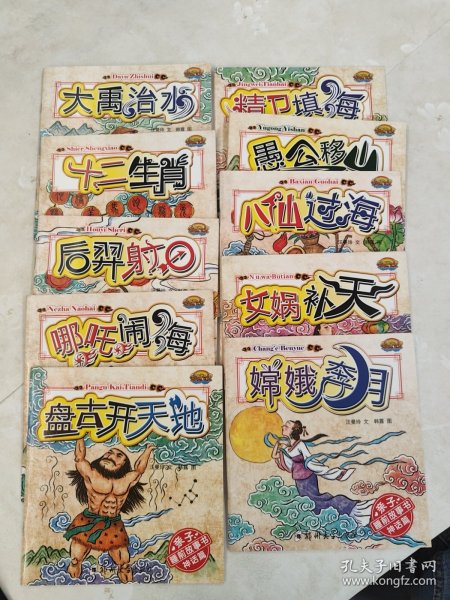 Dayu Zhishui
大禹治水
Shier Shengxiao
十二生肖
Houyi Sheri
后羿射日
Nezha Naohai
哪吒闹海
Pangu Kai Tiandi
盘古开天地
汪曼玲 文 韩喜 图
亲子
睡前故事书
神话篇
Jingwei Tianhai
精卫填海
Yugong Yishan
愚公移山
Baxian Guohai
八仙过海
Nuwa Butian
女娲补天
Chang'e Benyue
嫦娥奔月
汪曼玲 文 韩喜 图
亲子
睡前故事书
神话篇
孔夫子旧书网